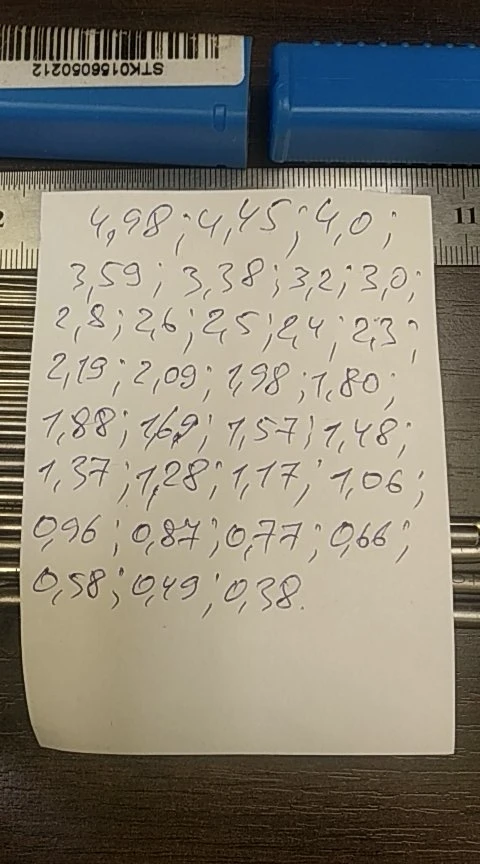 STK0156050212
2
11
4,98; 4,45; 4,0;
3,59; 3,38; 3,2; 3,0;
2,8; 2,6; 2,5; 2,4; 2,3;
2,19; 2,09; 1,98; 1,80;
1,88; 1,69; 1,57; 1,48;
1,37; 1,28; 1,17; 1,06;
0,96; 0,87; 0,77; 0,66;
0,58; 0,49; 0,38.